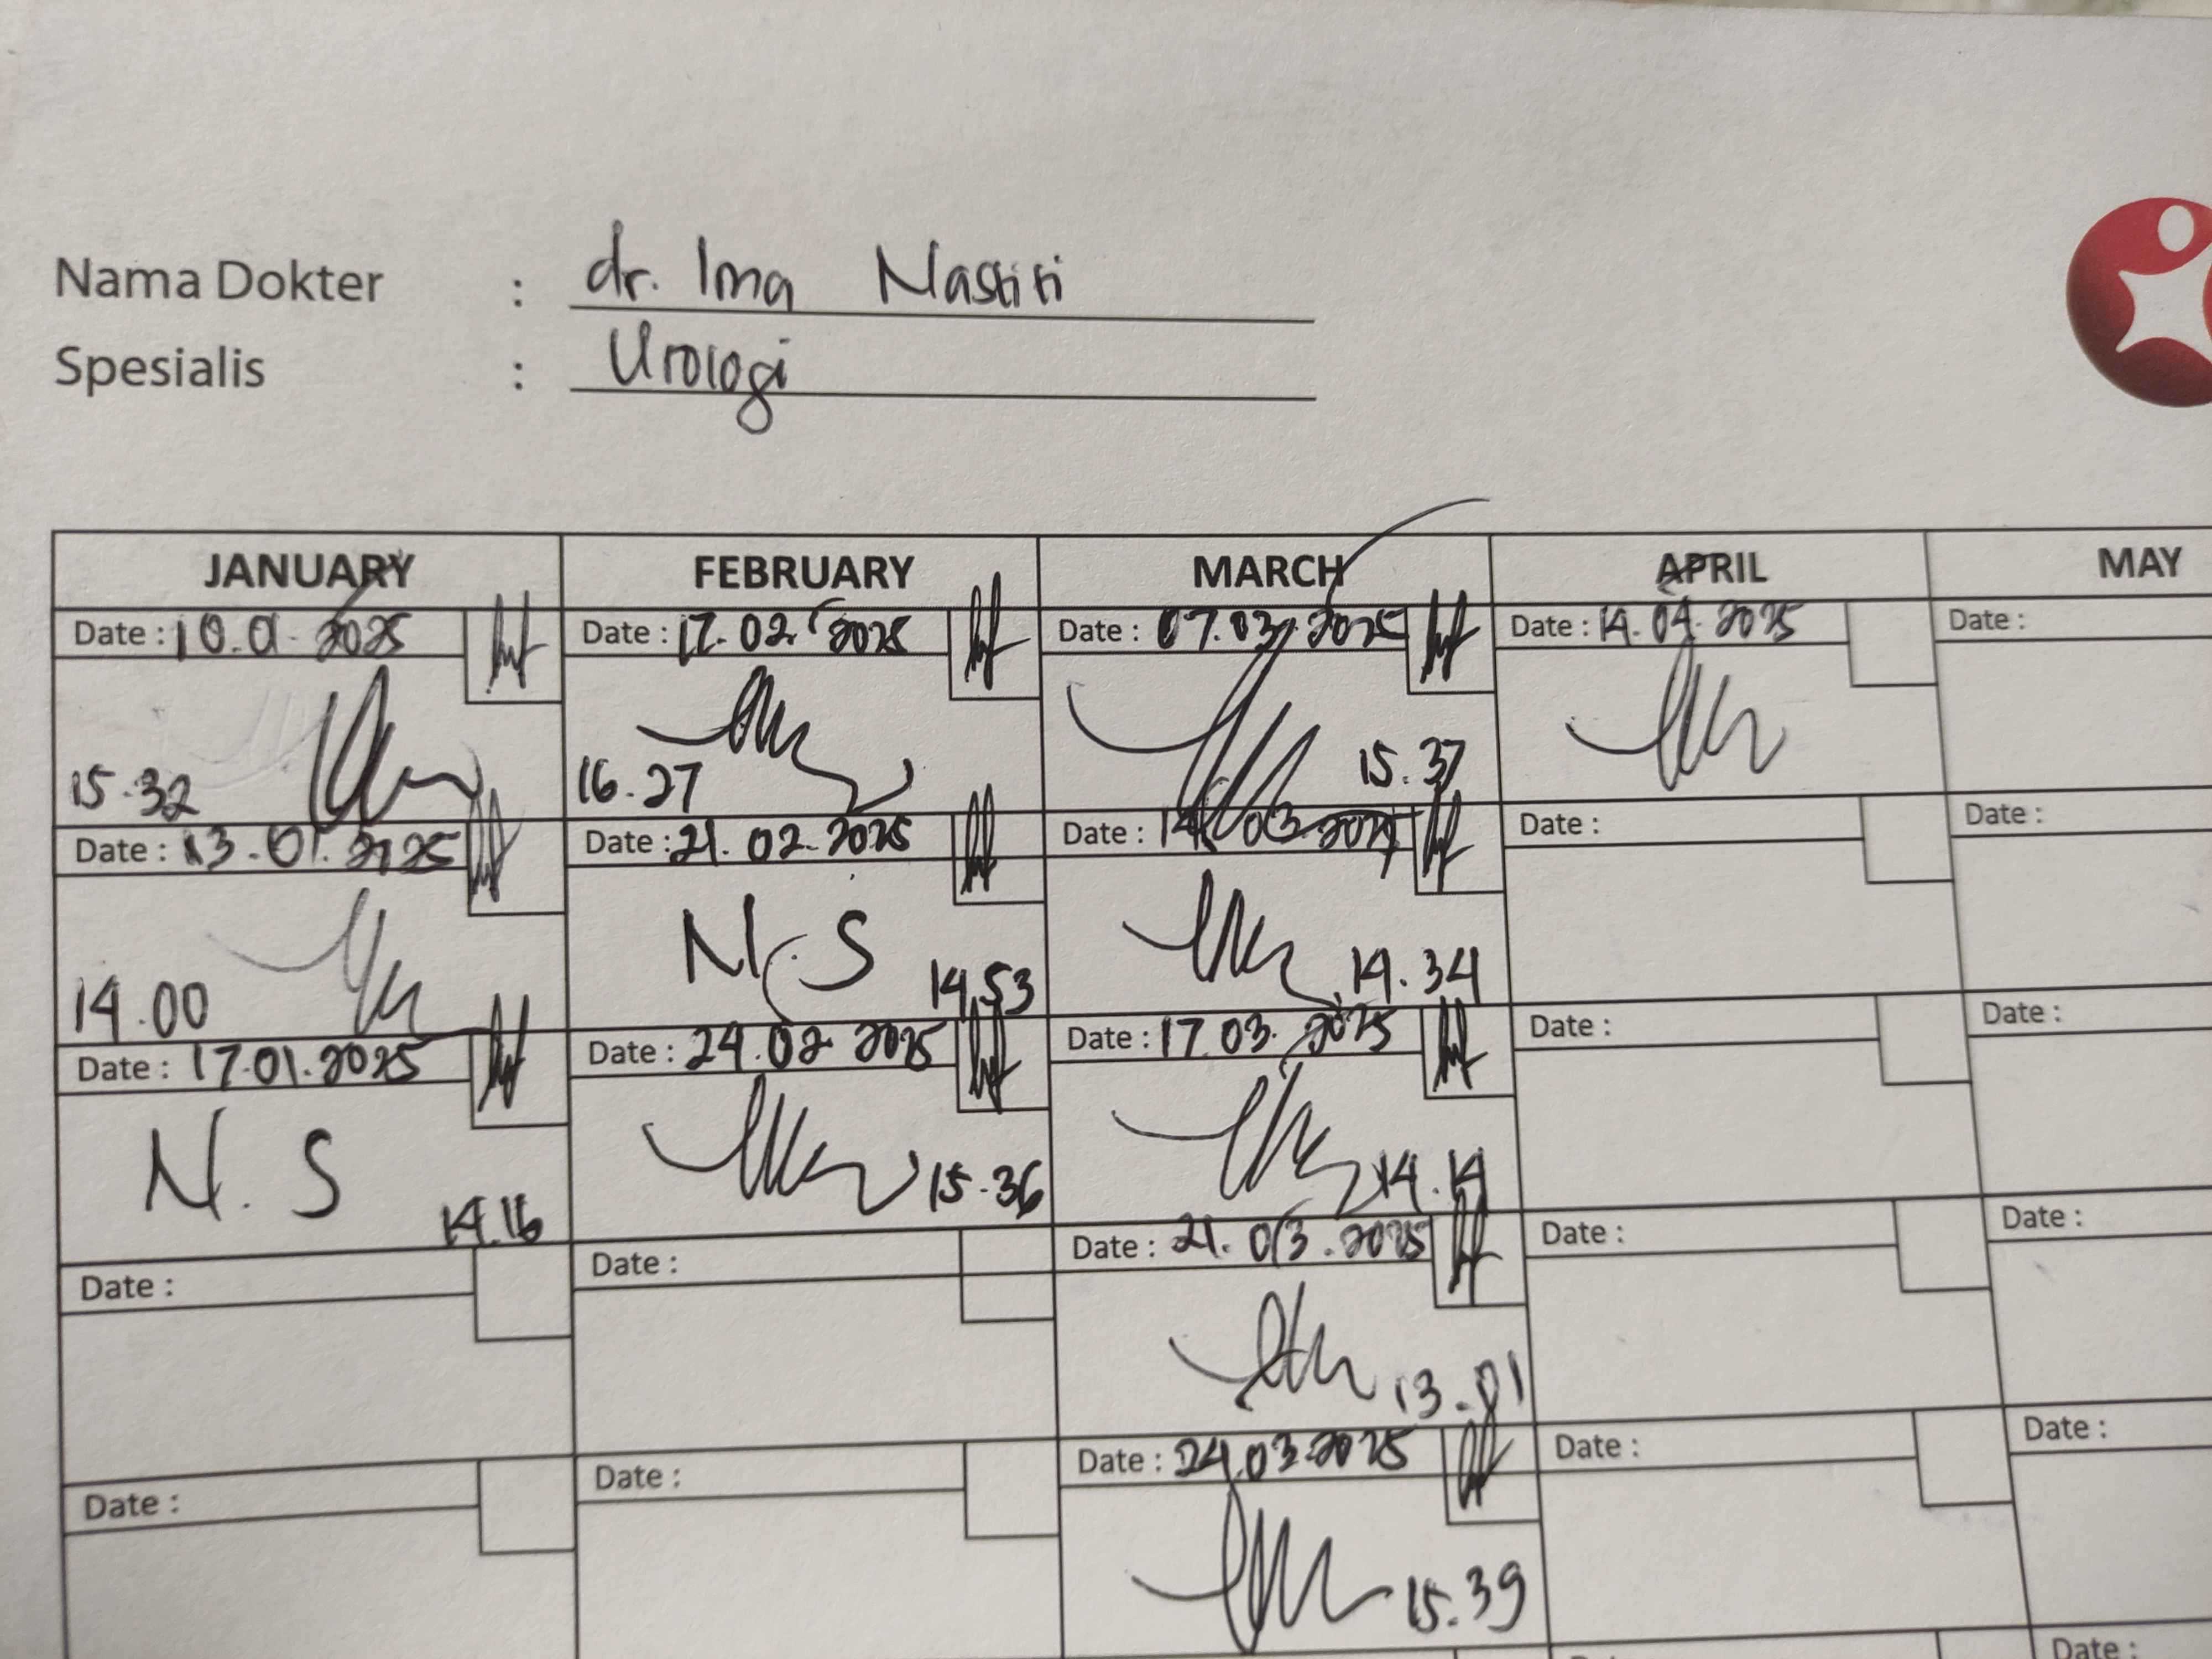 Nama Dokter : dr. Ima Nastiti
Spesialis : Urologi
JANUARY FEBRUARY MARCH APRIL MAY
Date : 10.01.2025 Date : 17.02.2025 Date : 07.03.2025 Date : 14.04.2025 Date :
15.32 16.27 15.37
Date : 13.01.2025 Date : 21.02.2025 Date : 14.03.2025 Date : Date :
14.00 N.S 14.53 14.34
Date : 17.01.2025 Date : 24.02.2025 Date : 17.03.2025 Date : Date :
N.S 14.16 15.36 14.14
Date : Date : Date : 21.03.2025 Date : Date :
13.01
Date : Date : Date : 24.03.2025 Date : Date :
15.39
Date :